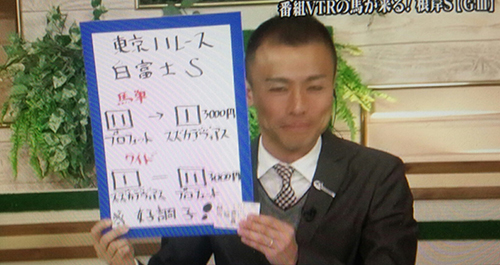 番組VTRの馬が来る!根岸S[GⅢ]
東京11レース
白富士S
馬単
11→1 3000円
プロフェット スズカデヴィアス
ワイド
1=11 3000円
スズカデヴィアス プロフェット
好調子!